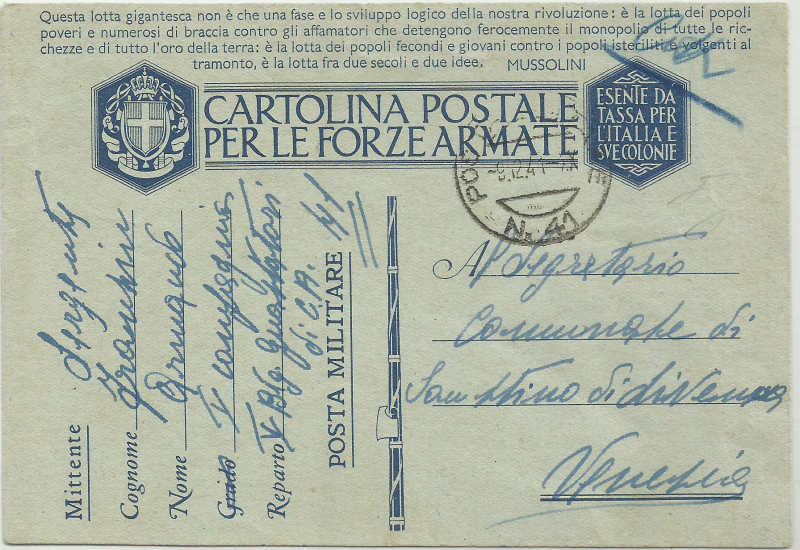 Questa lotta gigantesca non è che una fase e lo sviluppo logico della nostra rivoluzione: è la lotta dei popoli
poveri e numerosi di braccia contro gli affamatori che detengono ferocemente il monopolio di tutte le ric-
chezze e di tutto l'oro della terra: è la lotta dei popoli fecondi e giovani contro i popoli isteriliti e volgenti al
tramonto, è la lotta fra due secoli e due idee. MUSSOLINI
CARTOLINA POSTALE
PER LE FORZE ARMATE
ESENTE DA
TASSA PER
L'ITALIA E
SVE COLONIE
-9.12.41
N. 41
Mittente Sergente
Cognome
Nome Armando
Grado V compagnia
Reparto V Big Guastatori
di C.A.
POSTA MILITARE 41
Al Segretario
Comunale di
San Stino di Livenza
Venezia